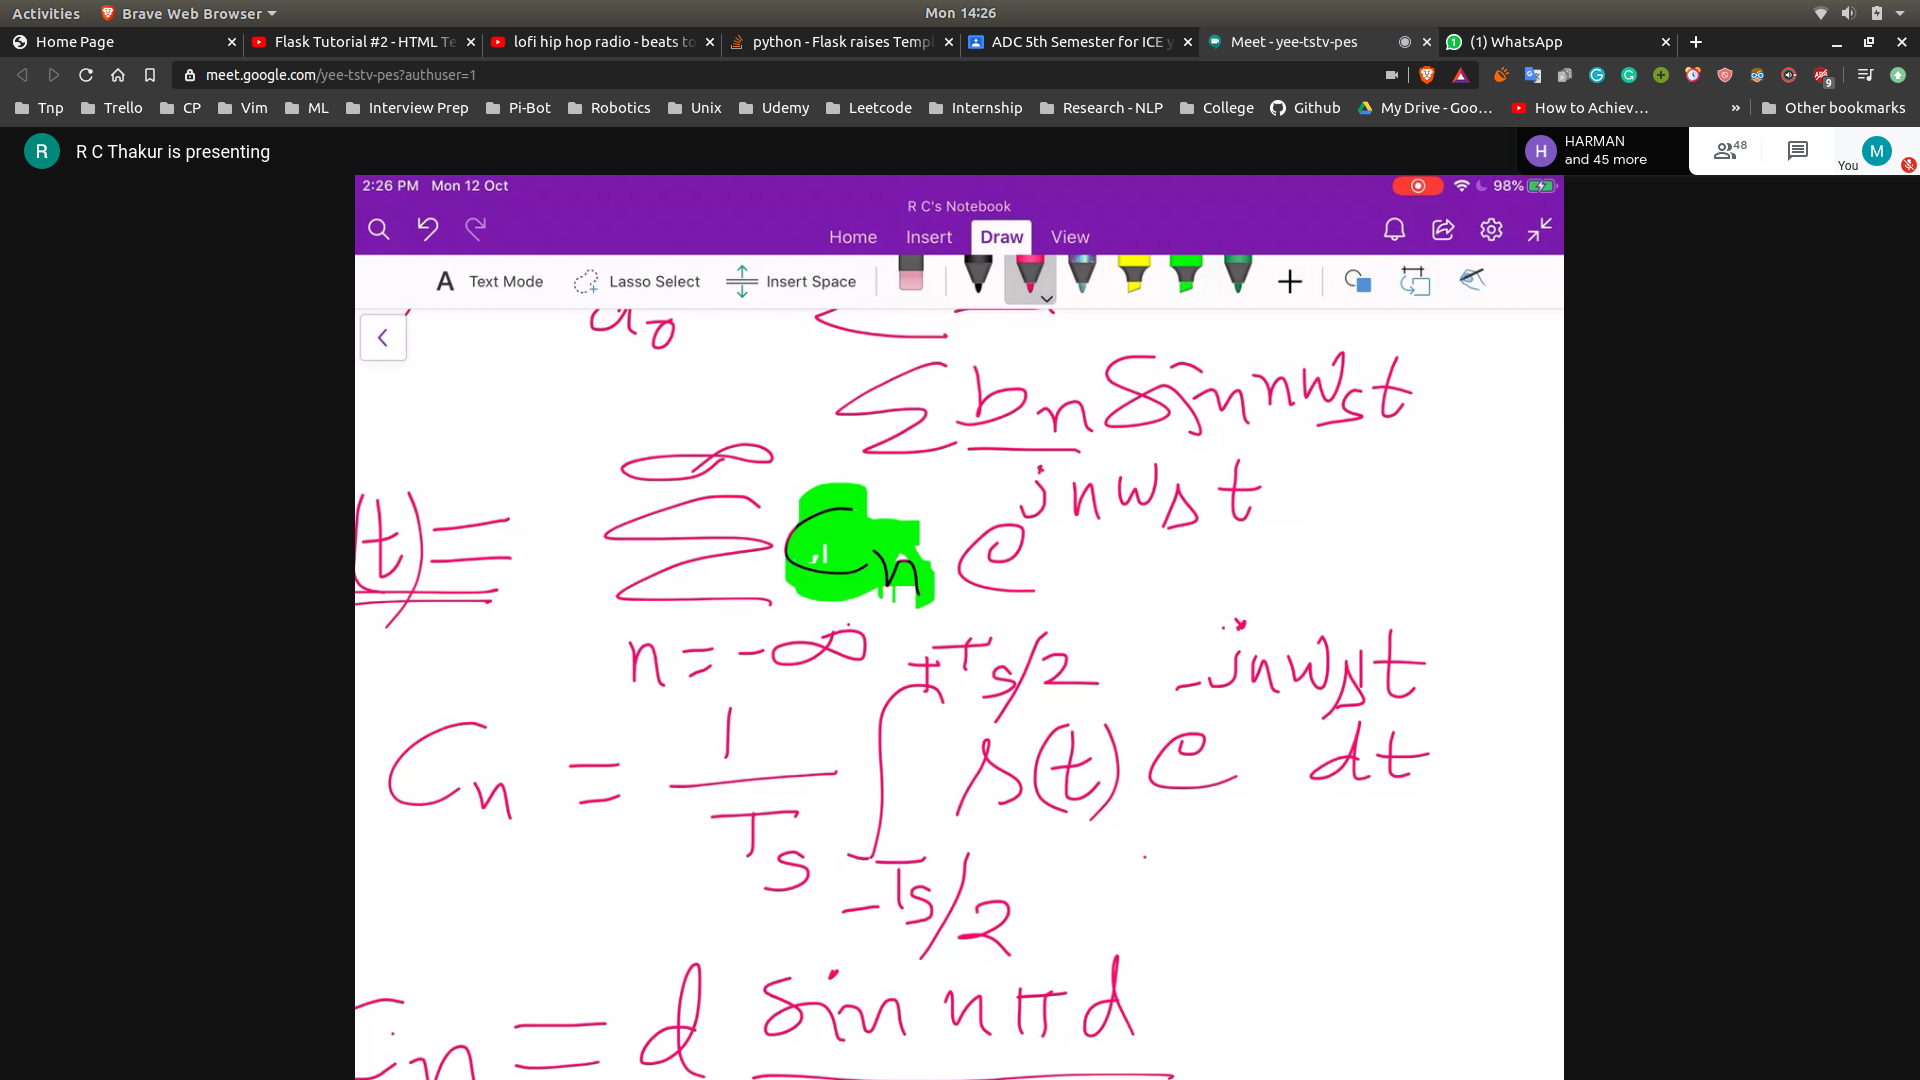 Activities Brave Web Browser Mon 14:26
Home Page Flask Tutorial #2 - HTML Te lofi hip hop radio - beats to python - Flask raises Templ ADC 5th Semester for ICE y Meet - yee-tstv-pes (1) WhatsApp
meet.google.com/yee-tstv-pes?authuser=1 9
Tnp Trello CP Vim ML Interview Prep Pi-Bot Robotics Unix Udemy Leetcode Internship Research - NLP College Github My Drive - Goo… How to Achiev… » Other bookmarks
R R C Thakur is presenting H HARMAN and 45 more 48 You M
2:26 PM Mon 12 Oct 98%
R C's Notebook
Home Insert Draw View
A Text Mode Lasso Select Insert Space
a₀ Σ
Σ bₙ Sin nwₛt
(t) = Σ Cₙ e^(jnwₛt)
∞
n = -∞
Cₙ = 1/Tₛ ∫ s(t) e^(-jnwₛt) dt
+Tₛ/2
-Tₛ/2
Cₙ = d sin nπd